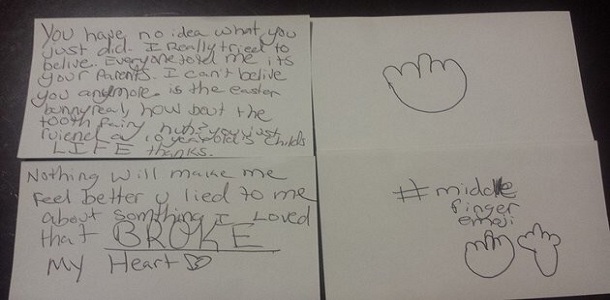 You have no idea what you
just did. I Really tried to
belive. Everyone told me its
your Parents. I can't belive
you anymore. is the easter
bunny real, how bout the
tooth fairy, huh? you just
ruiend a 10 yearold's childs
LIFE thanks.
Nothing will make me
Feel better u lied to me
about somthing I Loved
that BROKE
My Heart
#middle
finger
emoji